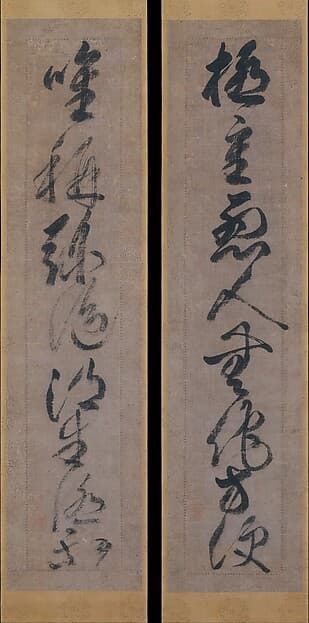 極重悪人無他方便
唯称弥陀得生極楽